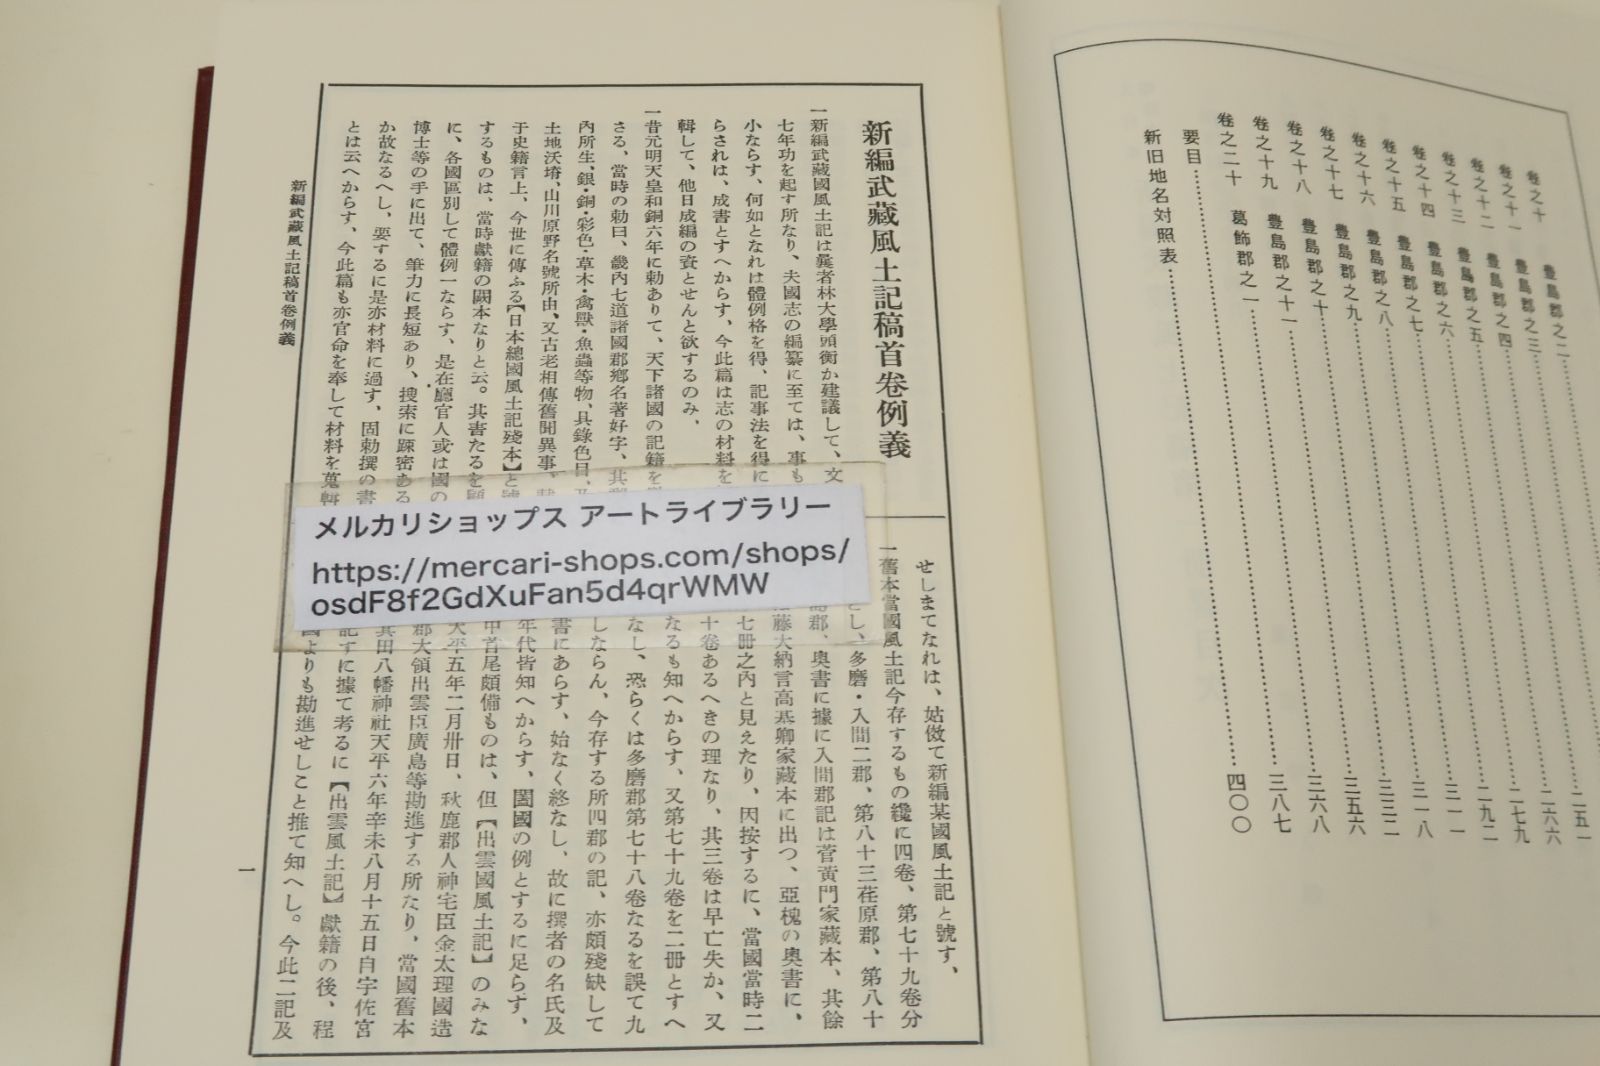 卷之十 豊島郡之二 二五一
卷之十一 豊島郡之三 二六六
卷之十二 豊島郡之四 二七九
卷之十三 豊島郡之五 二九二
卷之十四 豊島郡之六 三一一
卷之十五 豊島郡之七 三一八
卷之十六 豊島郡之八 三三二
卷之十七 豊島郡之九 三五六
卷之十八 豊島郡之十 三六八
卷之十九 豊島郡之十一 三八七
卷之二十 葛飾郡之一 四〇〇
要目
新旧地名対照表
新編武藏風土記稿首卷例義
一新編武藏國風土記は曩者林大學頭衡か建議して、文
七年功を起す所なり、夫國志の編纂に至ては、事も
小ならす、何如となれは體例格を得、記事法を得に
らされは、成書とすへからす、今此篇は志の材料を
輯して、他日成編の資とせんと欲するのみ、
一昔元明天皇和銅六年に勅ありて、天下諸國の記籍を
さる、當時の勅曰、畿內七道諸國郡鄉名著好字、其
內所生、銀・銅・彩色・草木・禽獸・魚蟲等物、具錄色目、及
土地沃塉、山川原野名號所由、又古老相傳舊聞異事、
于史籍言上、今世に傳ふる【日本總國風土記殘本】と
するものは、當時獻籍の闕本なりと云。其書たるを
に、各國區別して體例一ならす、是在廳官人或は國の
博士等の手に出て、筆力に長短あり、搜索に踈密ある
か故なるへし、要するに是亦材料に過す、固勅撰の書
とは云へからす、今此篇も亦官命を奉して材料を蒐輯
せしまてなれは、姑傚て新編某國風土記と號す、
一舊本當國風土記今存するもの纔に四卷、第七十九卷分
とし、多磨・入間二郡、第八十三荏原郡、第八十
島郡、奧書に據に入間郡記は菅黃門家藏本、其餘
藤大納言高基卿家藏本に出つ、亞槐の奧書に、
七冊之內と見えたり、因按するに、當國當時二
十卷あるへきの理なり、其三卷は早亡失か、又
なるも知へからす、又第七十九卷を二冊とすへ
なし、恐らくは多磨郡第七十八卷なるを誤て九
しならん、今存する所四郡の記、亦頗殘缺して
書にあらす、始なく終なし、故に撰者の名氏及
年代皆知へからす、闔國の例とするに足らす、
甲首尾頗備ものは、但【出雲國風土記】のみな
天平五年二月卅日、秋鹿郡人神宅臣金太理國造
郡大領出雲臣廣島等勘進する所なり、當國舊本
其田八幡神社天平六年辛未八月十五日自宇佐宮
記すに據て考るに【出雲風土記】獻籍の後、程
國よりも勘進せしこと推て知へし。今此二記及
新編武藏風土記稿首卷例義
一
メルカリショップス アートライブラリー
https://mercari-shops.com/shops/
osdF8f2GdXuFan5d4qrWMW